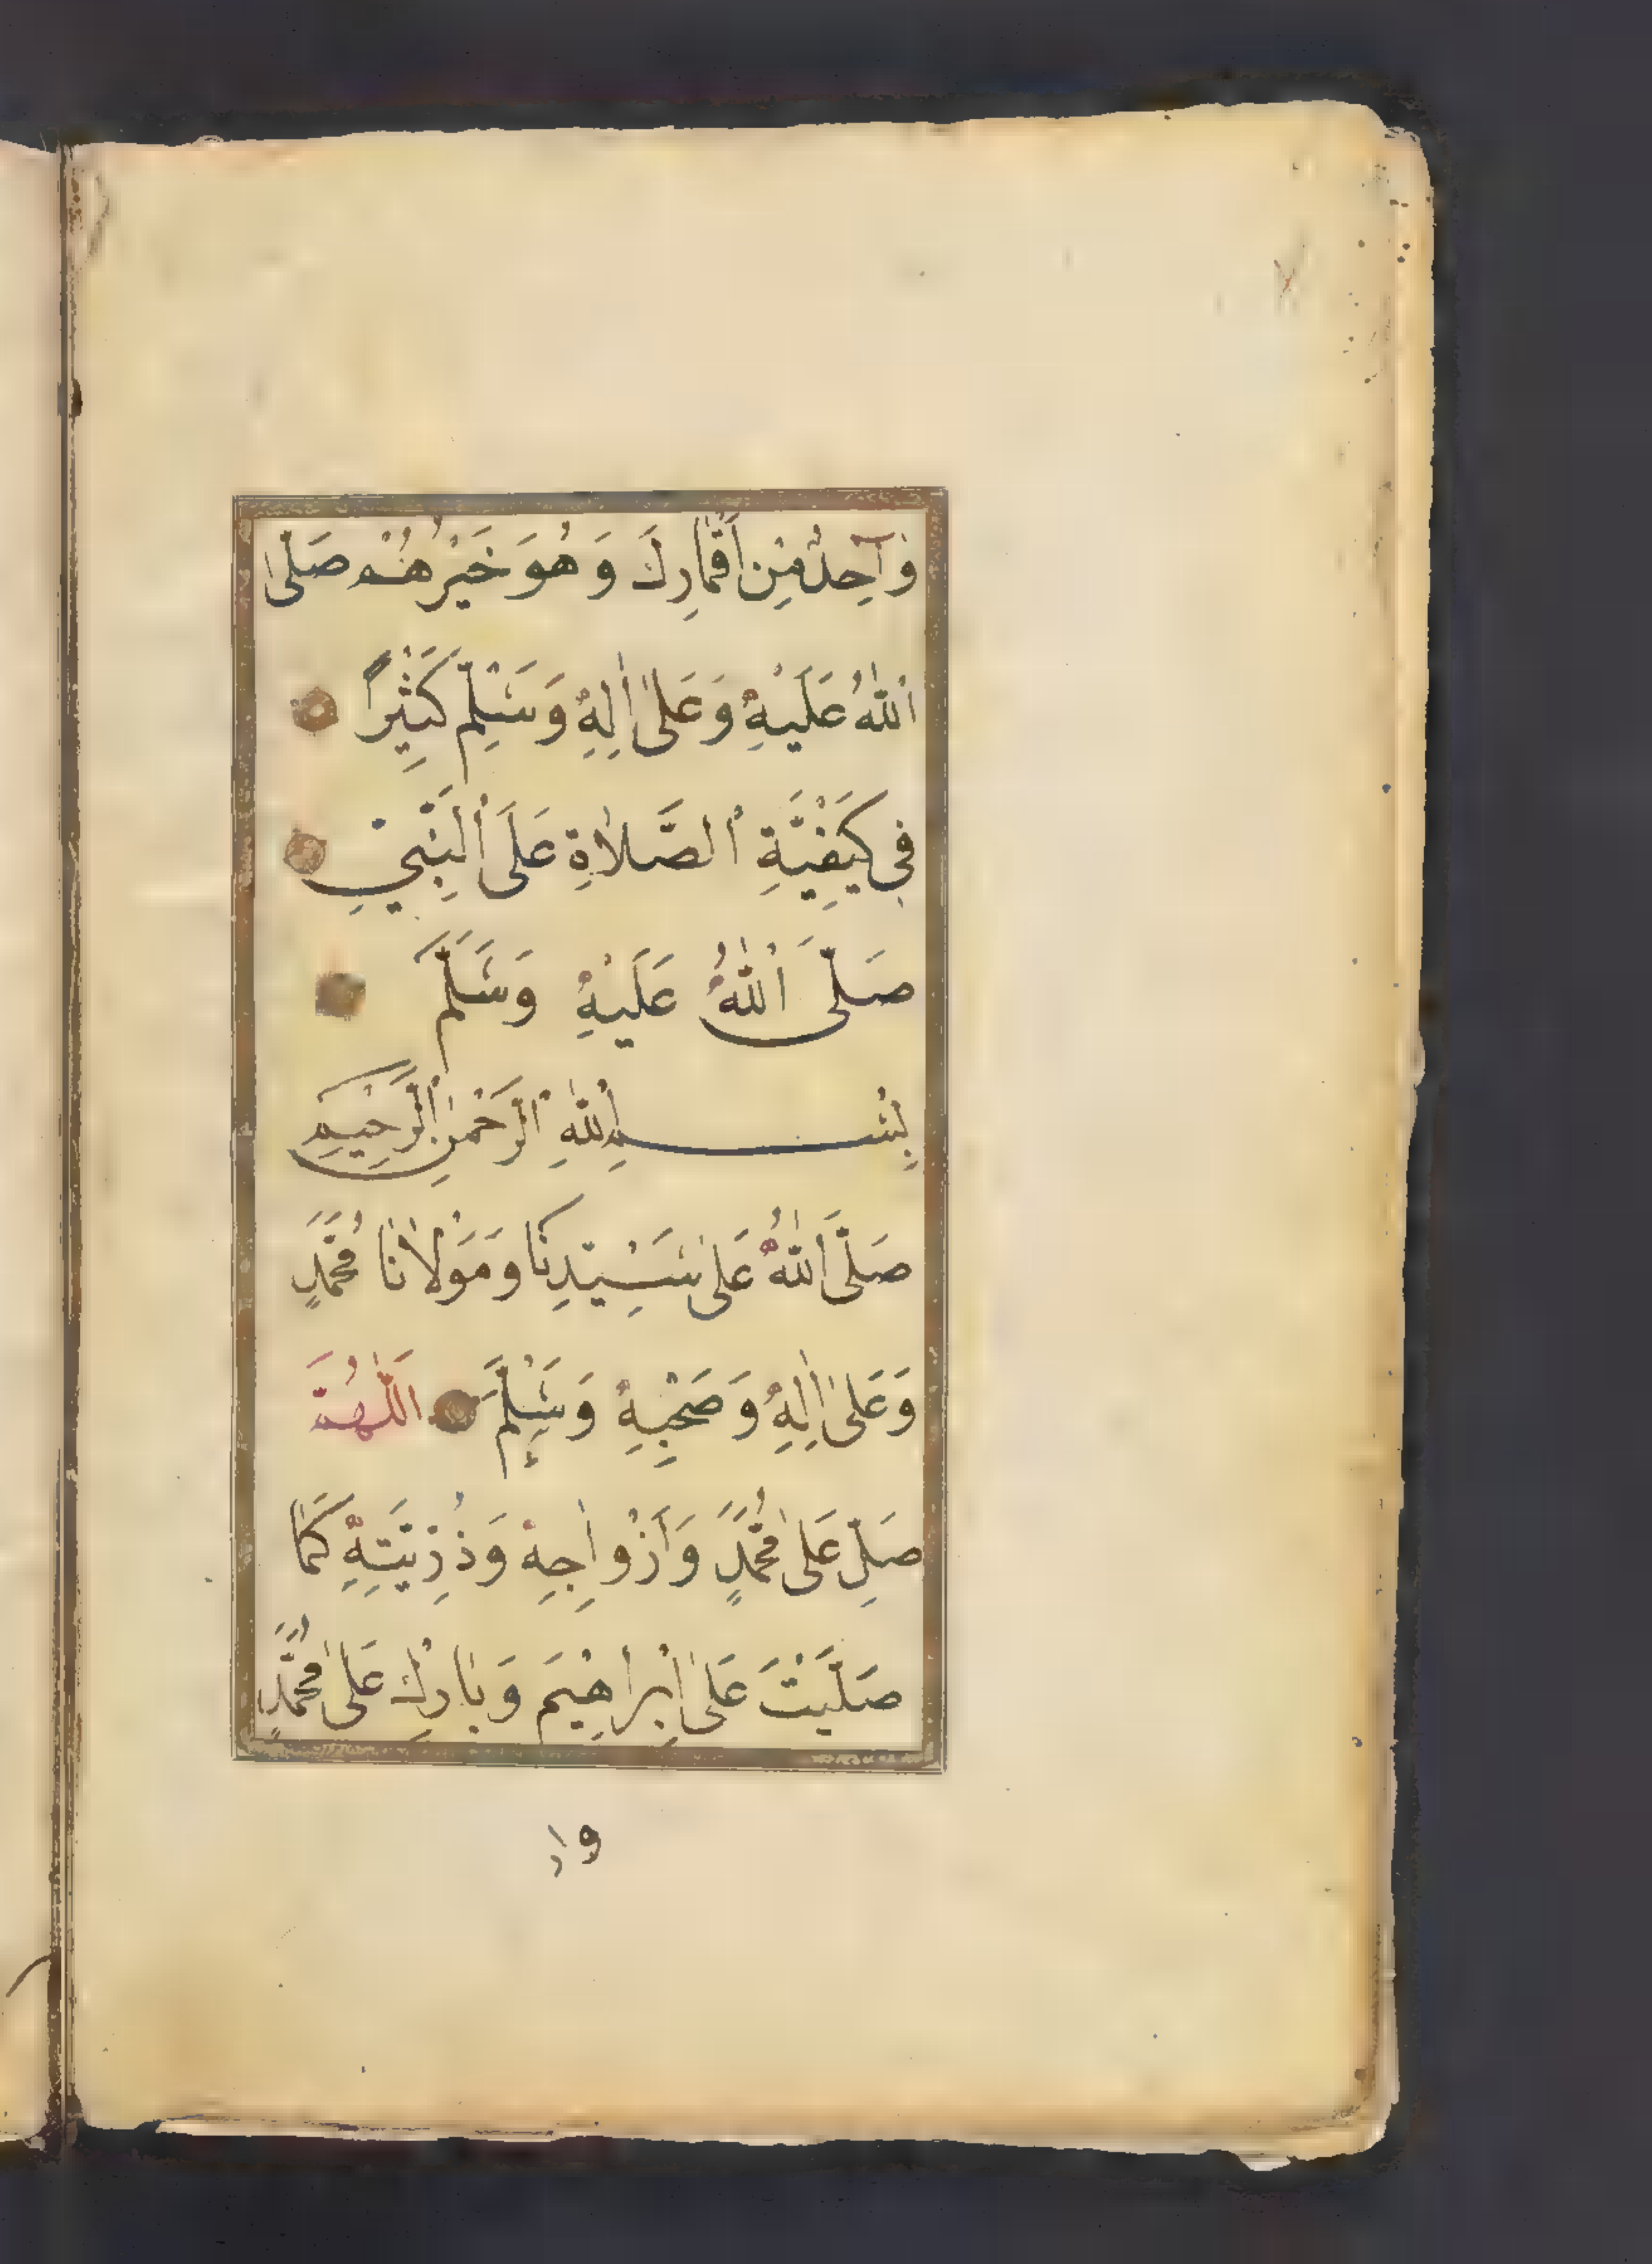 وَاحِدٌ مِنْ أَقْمَارِكَ وَهُوَ خَيْرُهُمْ صَلَّى
اللهُ عَلَيْهِ وَعَلَى اٰلِهِ وَسَلِّمْ كَثِيرًا
فِي كَيْفِيَّةِ الصَّلَاةِ عَلَى النَّبِيِّ
صَلَّى اللهُ عَلَيْهِ وَسَلَّمَ
بِسْمِ اللهِ الرَّحْمٰنِ الرَّحِيمِ
صَلَّى اللهُ عَلَى سَيِّدِنَا وَمَوْلَانَا مُحَمَّدٍ
وَعَلَى اٰلِهِ وَصَحْبِهِ وَسَلَّمَ اَللّٰهُمَّ
صَلِّ عَلَى مُحَمَّدٍ وَأَزْوَاجِهِ وَذُرِّيَّتِهِ كَمَا
صَلَّيْتَ عَلَى إِبْرَاهِيمَ وَبَارِكْ عَلَى مُحَمَّدٍ